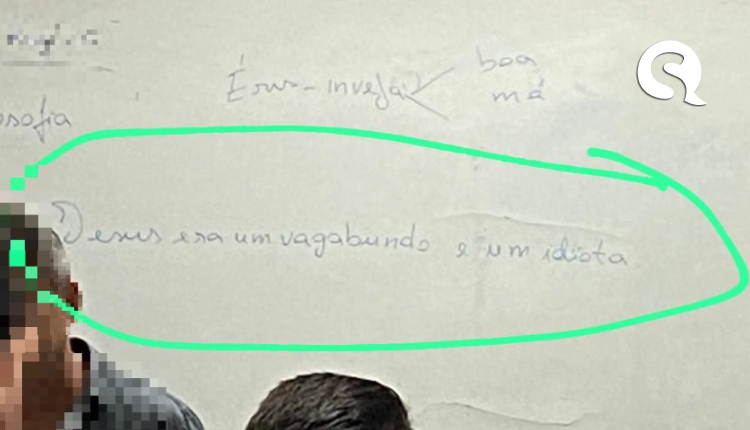 osofia
Érus-inveja
boa
má
Jesus era um vagabundo e um idiota